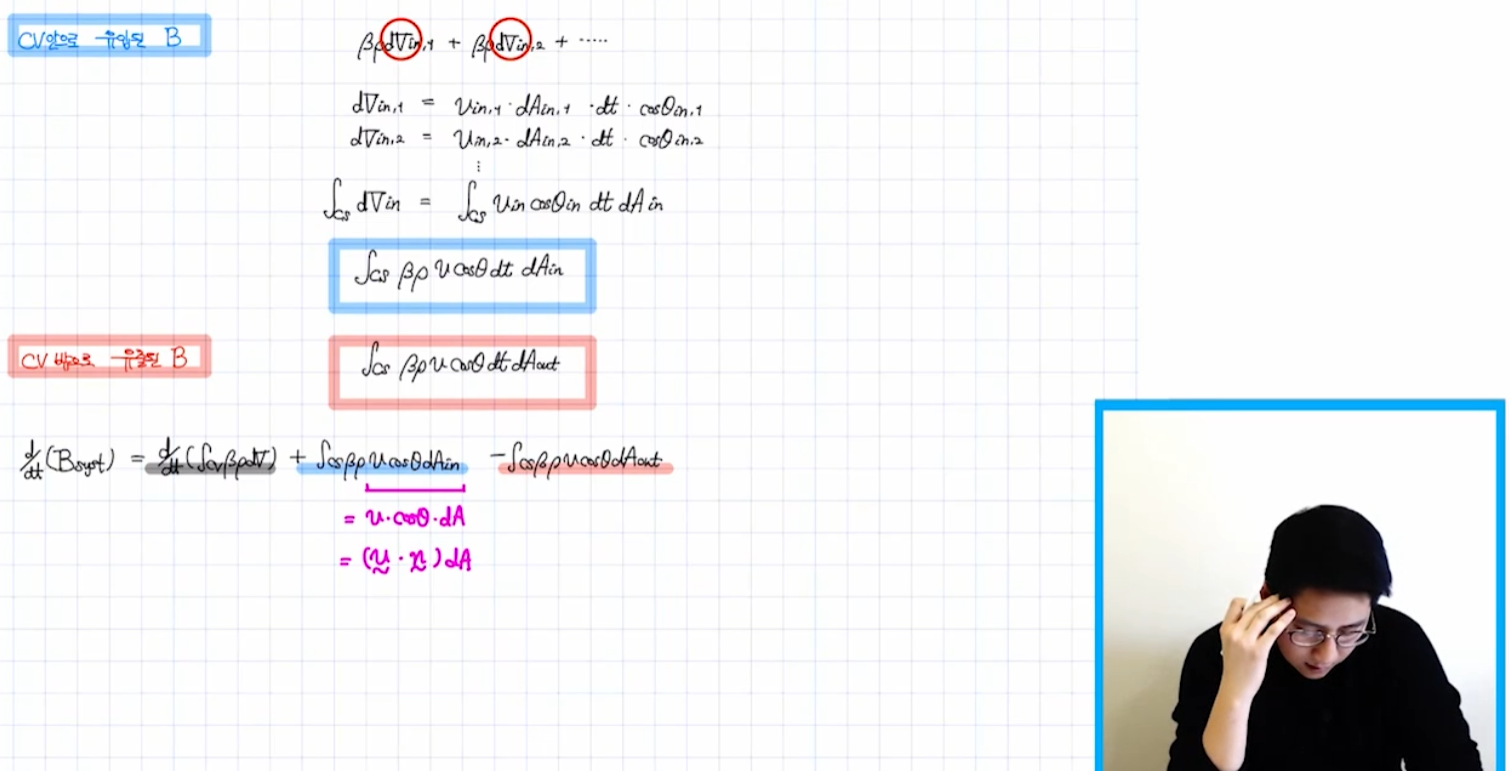 CV안으로 유입된 B
βρdV̶in,1 + βρdV̶in,2 + ·····
dV̶in,1 = uin,1 · dAin,1 · dt · cosθin,1
dV̶in,2 = uin,2 · dAin,2 · dt · cosθin,2
⋮
∫cs dV̶in = ∫cs uin cosθin dt dAin
∫cs βρ u cosθ dt dAin
CV 밖으로 유출된 B
∫cs βρ u cosθ dt dAout
d/dt (Bsyst) = d/dt (∫cv βρdV̶) + ∫cs βρ u cosθ dAin - ∫cs βρ u cosθ dAout
= u·cosθ·dA
= (ṵ · n̰) dA